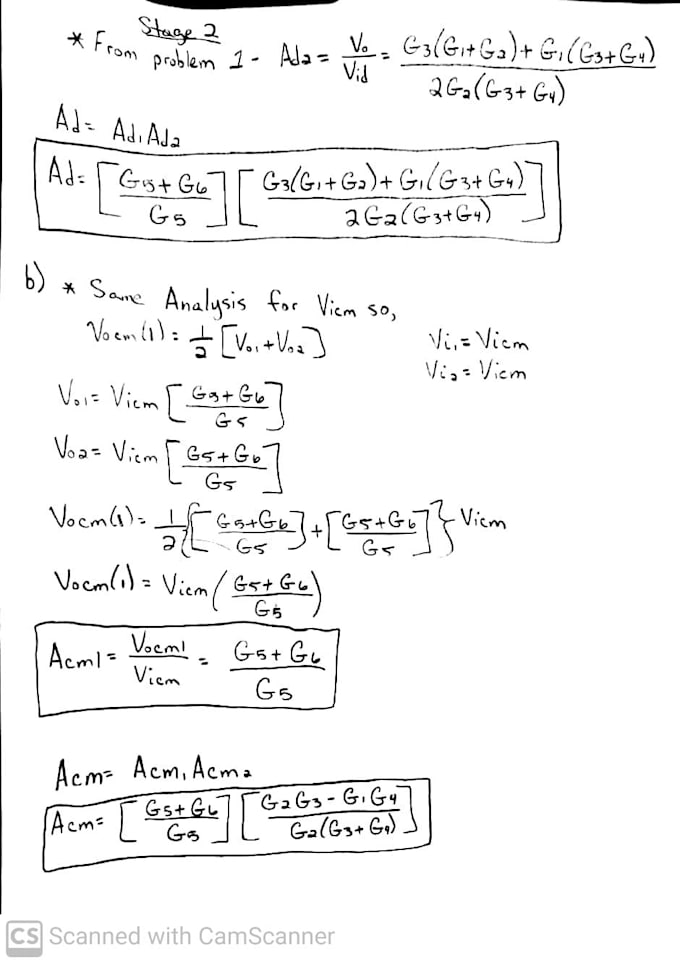 Stage 2
* From problem 1 - Ad2 = Vo/Vid = G3(G1+G2)+G1(G3+G4) / 2G2(G3+G4)
Ad = Ad1 Ad2
Ad = [G5+G6 / G5] [G3(G1+G2)+G1(G3+G4) / 2G2(G3+G4)]
b) * Same Analysis for Vicm so,
Vocm(1) = 1/2 [Vo1+Vo2]
Vi1 = Vicm
Vi2 = Vicm
Vo1 = Vicm [G5+G6 / G5]
Vo2 = Vicm [G5+G6 / G5]
Vocm(1) = 1/2 {[G5+G6 / G5] + [G5+G6 / G5]} Vicm
Vocm(1) = Vicm (G5+G6 / G5)
Acm1 = Vocm1 / Vicm = G5+G6 / G5
Acm = Acm1 Acm2
Acm = [G5+G6 / G5] [G2G3-G1G4 / G2(G3+G4)]
CS Scanned with CamScanner